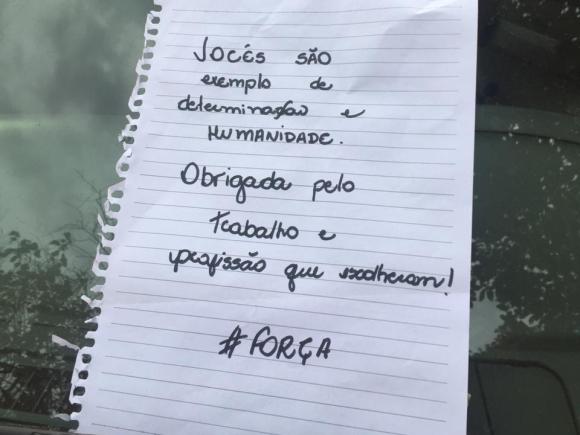 Vocês são
exemplo de
determinação e
HUMANIDADE.
Obrigada pelo
trabalho e
profissão que escolheram!
#FORÇA